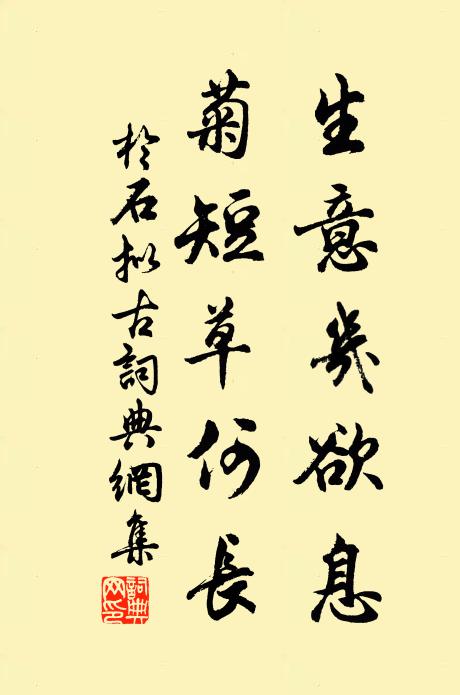 生意幾欲息
菊短草何長
於石拟古詞典網集
詞典網印